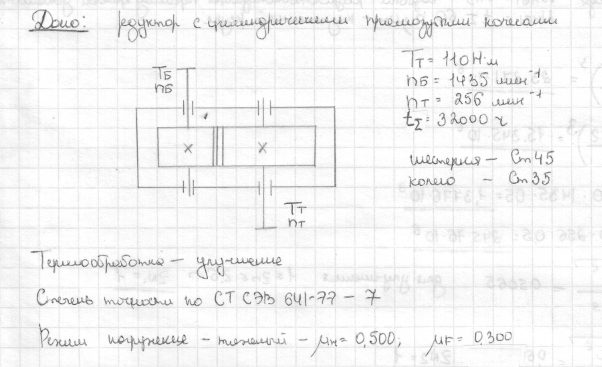 Дано: редуктор с цилиндрическими прямозубыми колесами
Tт = 110 Н·м
nБ = 1435 мин⁻¹
nт = 256 мин⁻¹
tΣ = 32000 ч
TБ
nБ
шестерня – Ст 45
колесо – Ст 35
Tт
nт
Термообработка – улучшение
Степень точности по СТ СЭВ 641-77 – 7
Режим нагружения – тяжелый – μH = 0,500, μF = 0,300